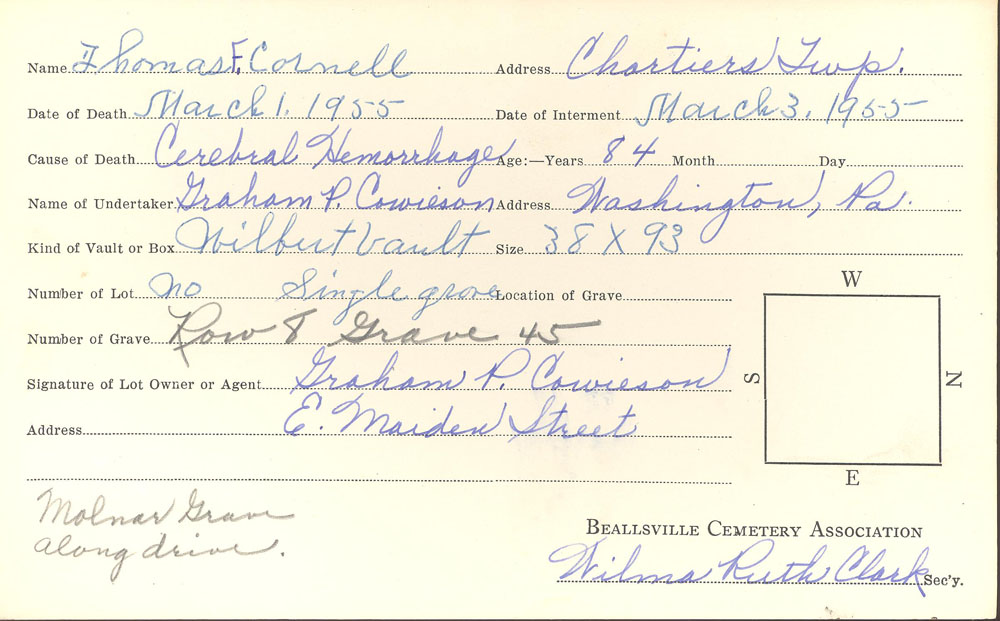 Name Thomas F. Cornell Address Chartiers Twp.
Date of Death March 1, 1955 Date of Interment March 3, 1955
Cause of Death Cerebral Hemorrhage Age:—Years 84 Month Day
Name of Undertaker Graham P. Cowieson Address Washington, Pa.
Kind of Vault or Box Wilbert Vault Size 38 X 93
Number of Lot no Single grave Location of Grave
Number of Grave Row 8 Grave 45
Signature of Lot Owner or Agent Graham P. Cowieson
Address E. Maiden Street
W
S
N
E
Molnar Grave
along drive.
BEALLSVILLE CEMETERY ASSOCIATION
Wilma Ruth Clark Sec'y.